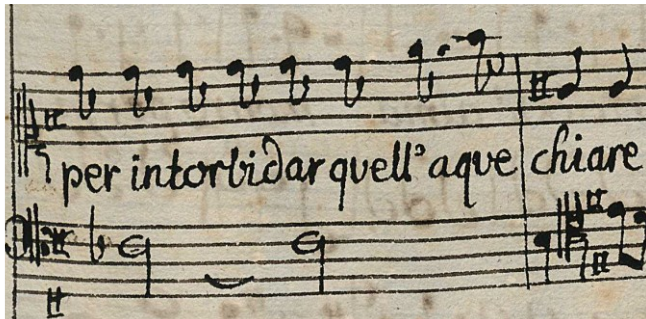 per intorbidar quell'aque chiare